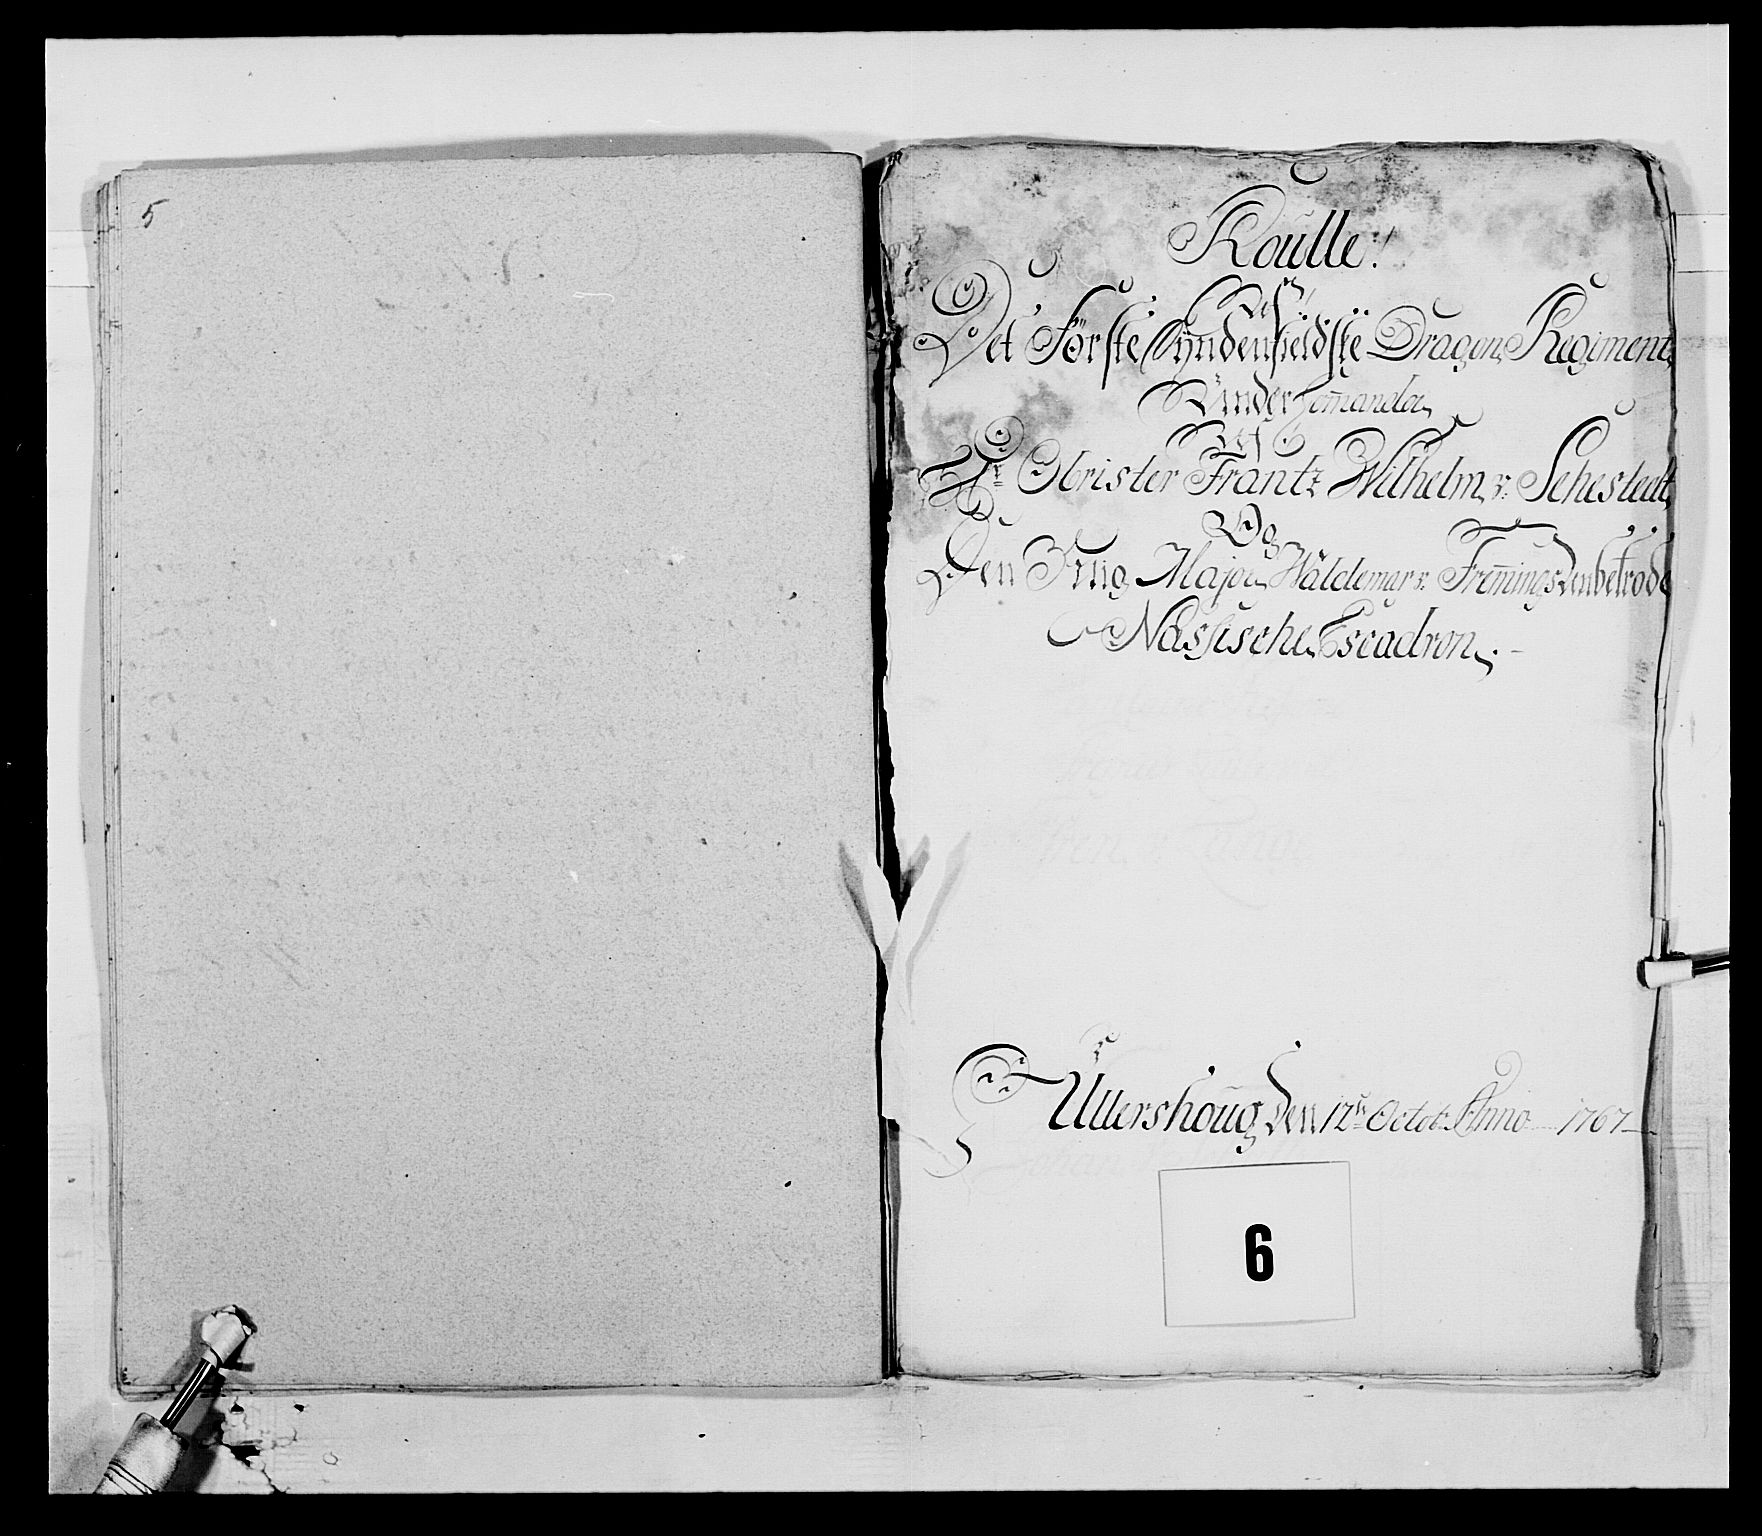 5
Roulle!
Over
Det Förste Syndenfieldske Dragon Regiment
Under Comando
Af
Hr Obrister Frantz Wilhelm v: Sehestedt
Og
Den Major Waldemar v:
Næssische Escadron
Ullershoug Den 12te Octobr Anno 1767
6